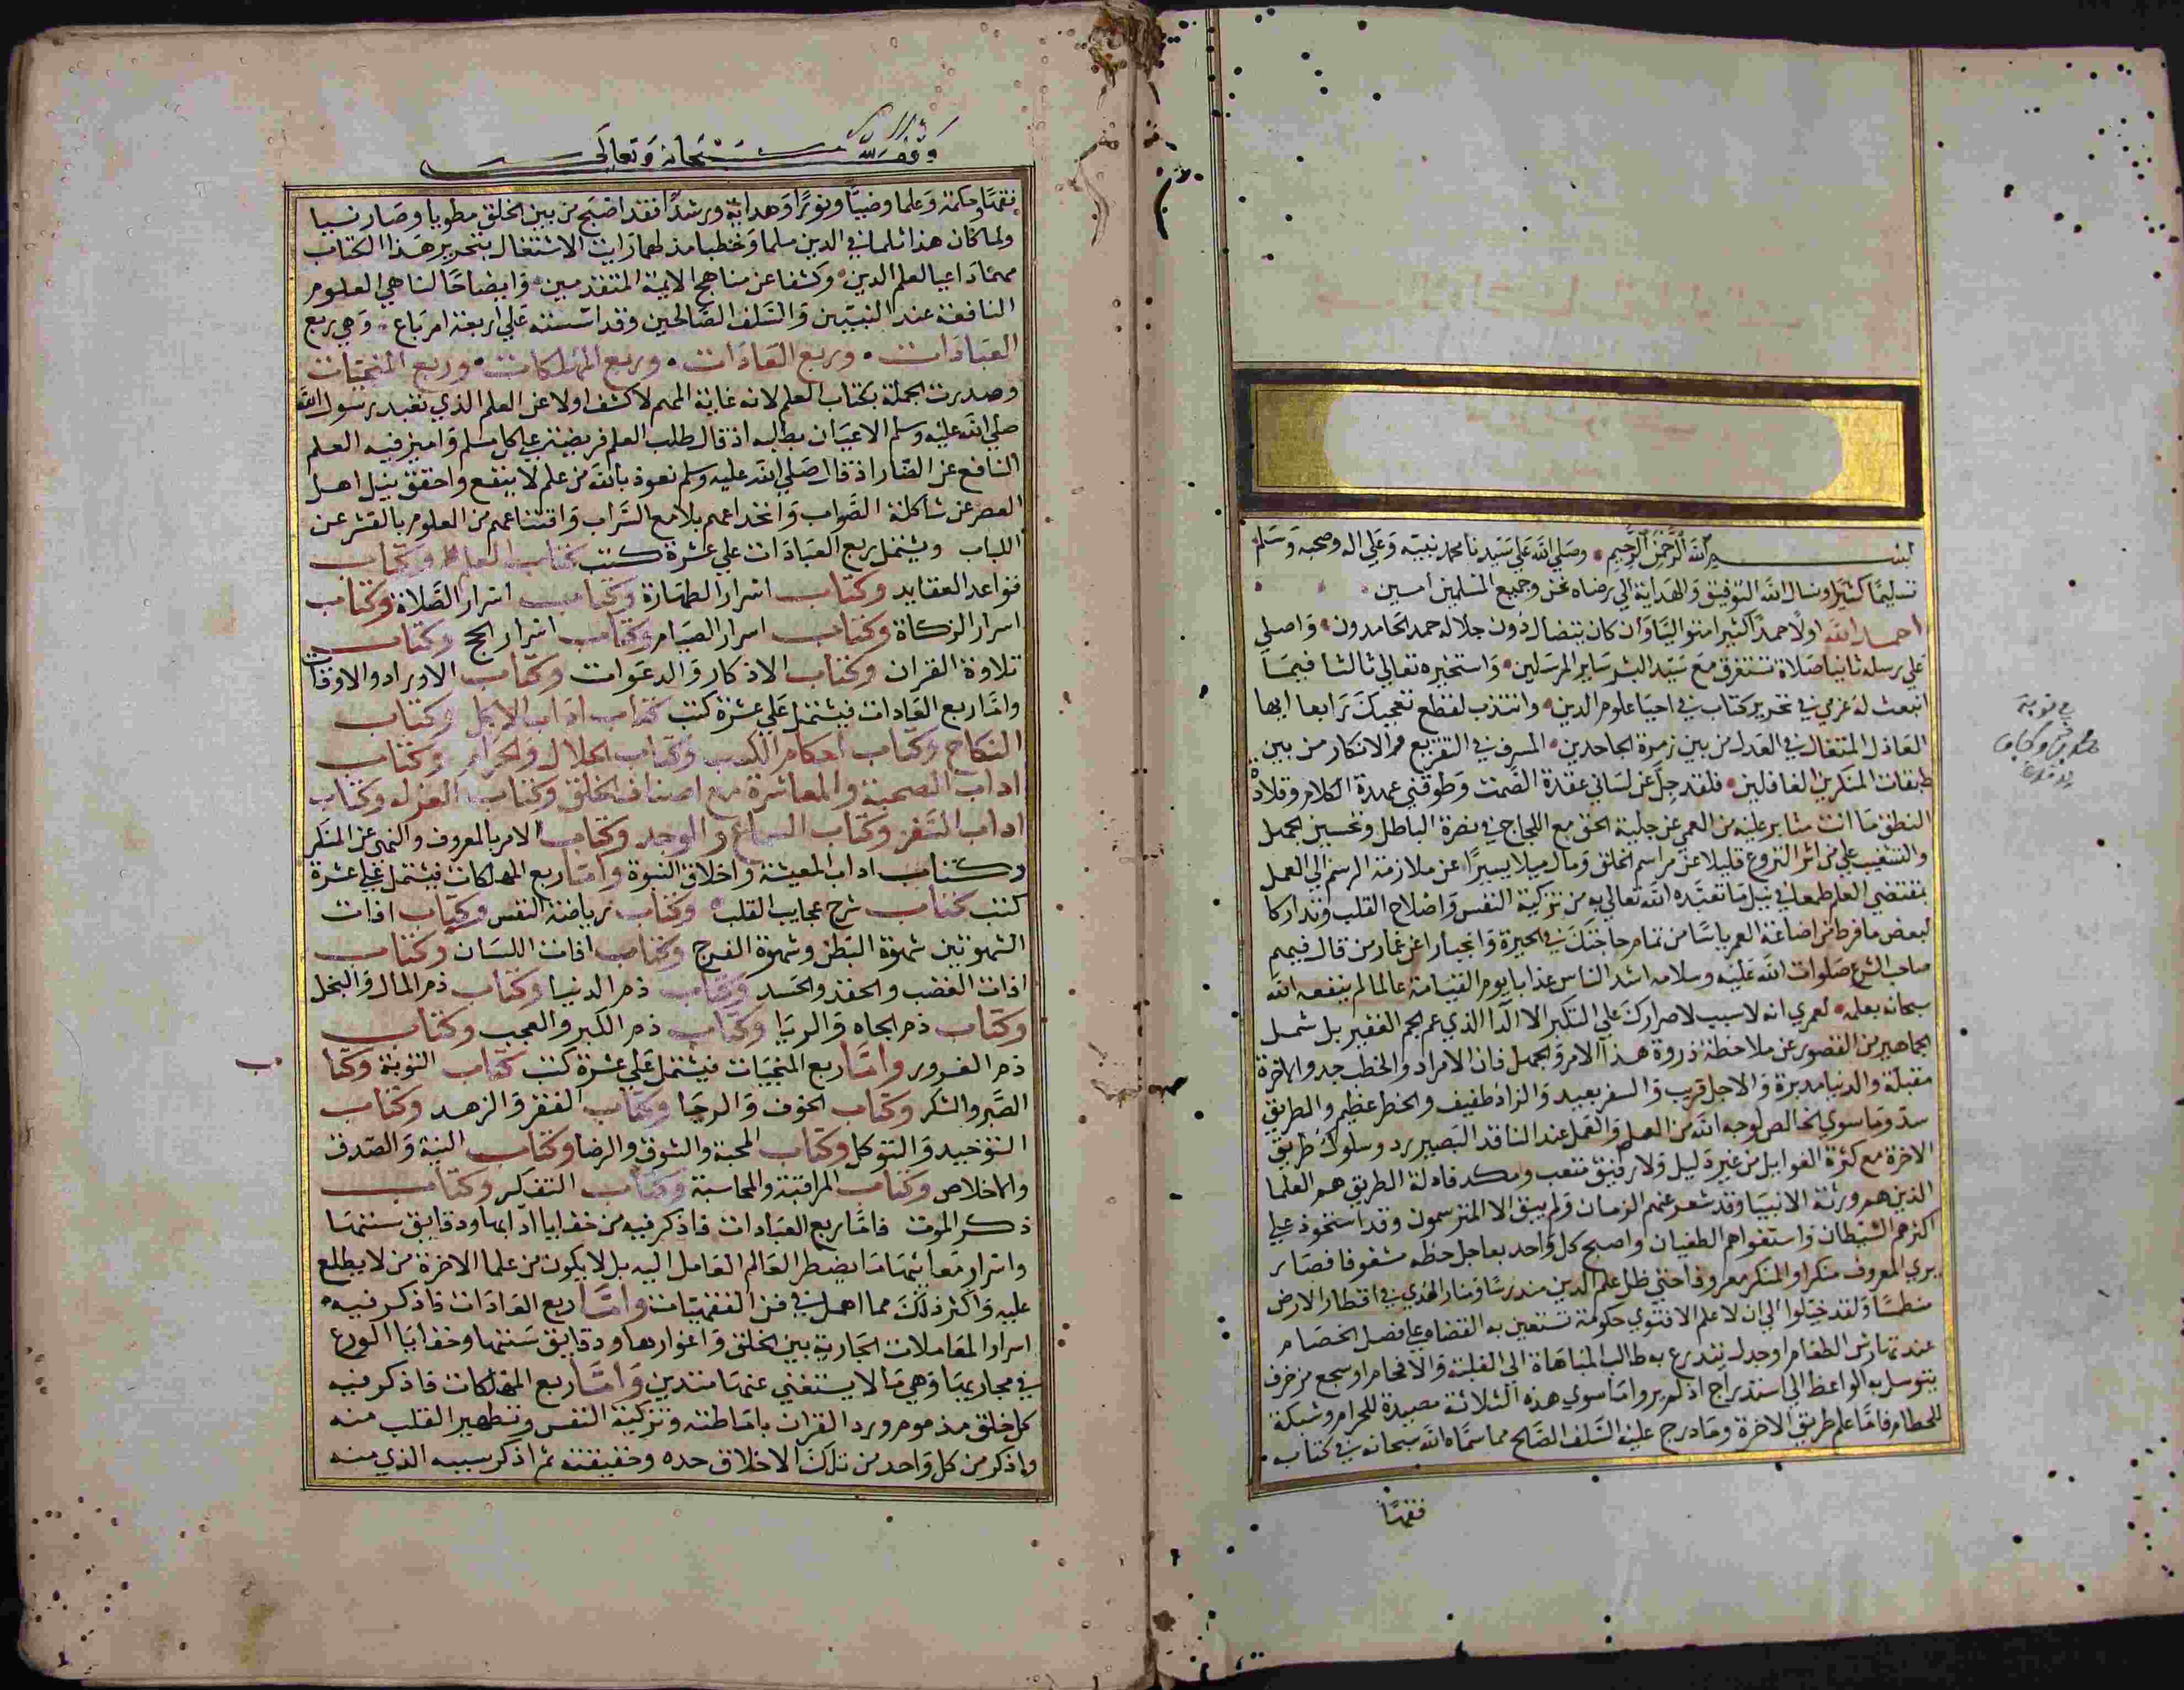 بسم الله الرحمن الرحيم وصلي الله علي سيدنا محمد نبيه وعلي اله وصحبه وسلم
تسليما كثيرا ونسال الله التوفيق والهداية الي رضاه نحن وجميع المسلمين امين
احمد الله اولا حمدا كثيرا متواليا وان كان يتضال دون جلاله حمد الحامدون واصلي
علي رسله ثانيا صلاة تستغرق مع سيد البشر ساير المرسلين واستخيره تعالي ثالثا فيما
انبعث له عزمي في تحرير كتاب في احيا علوم الدين وانتدب لقطع تعجبك رابعا ايها
العاذل المتغال في العدل من بين زمرة الجاحدين المسرف في التقريع والانكار من بين
طبقات المنكرين الغافلين فلقد حل عن لساني عقدة الصمت وطوقني عهدة الكلام وقلادة
النطق ما انت مثابر عليه من العمي عن جلية الحق مع اللجاج في نصرة الباطل وتحسين الجهل
والتشغيب علي من اثر النزوع قليلا عن مراسم الخلق ومال ميلا يسيرا عن ملازمة الرسم الي العمل
بمقتضي العلم طمعا في نيل ما تعبده الله تعالي به من تزكية النفس واصلاح القلب وتداركا
لبعض ما فرط من اضاعة العمر ياسا من تمام حاجتك في الحيرة وانحيازا عن غمار من قال فيهم
صاحب الشرع صلوات الله عليه وسلامه اشد الناس عذابا يوم القيامة عالما لم ينفعه الله
سبحانه بعلمه لعمري انه لا سبب لاصرارك علي التكبر الا الدا الذي عم الجم الغفير بل شمل
الجماهير من القصور عن ملاحظة ذروة هذا الامر والجهل فان الامر اد والخطب جد والاخرة
مقبلة والدنيا مدبرة والاجل قريب والسفر بعيد والزاد طفيف والخطر عظيم والطريق
سد وما سوي الخالص لوجه الله من العلم والعمل عند الناقد البصير رد وسلوك طريق
الاخرة مع كثرة الغوايل من غير دليل ولا رفيق متعب ومكد فادلة الطريق هم العلما
الذين هم ورثة الانبيا وقد شعر عنهم الزمان ولم يبق الا المترسمون وقد استحوذ علي
اكثرهم الشيطان واستغواهم الطغيان واصبح كل واحد بعاجل حظه مشغوفا فصار
يري المعروف منكرا والمنكر معروفا حتي ظل علم الدين مندرسا ومنار الهدي في اقطار الارض
منطمسا ولقد خيلوا الي ان لا علم الا فتوي حكومة تستعين به القضاة علي فصل الخصام
عند تهارش الطغام او جدل يتدرع به طالب المباهاة الي الغلبة والافحام او سجع مزخرف
يتوسل به الواعظ الي استدراج اذ لم يروا ما سوي هذه الثلاثة مصيدة للحرام وشبكة
للحطام فاما علم طريق الاخرة وما درج عليه السلف الصالح مما سماه الله سبحانه في كتابه
فقها
وقف لله سبحانه وتعالي
فقها وحكمة وعلما وضيا ونورا وهداية ورشدا فقد اصبح من بين الخلق مطويا وصار نسيا
ولما كان هذا ثلما في الدين ملما وخطبا مدلهما رايت الاشتغال بتحرير هذا الكتاب
مهما داعيا لعلم الدين وكشفا عن مناهج الايمة المتقدمين وايضاحا لمناهي العلوم
النافعة عند النبيين والسلف الصالحين وقد اسسته علي اربعة ارباع وهي ربع
العبادات وربع العادات وربع المهلكات وربع المنجيات
وصدرت الجملة بكتاب العلم لانه غاية المهم لاكشف اولا عن العلم الذي تعبد رسول الله
صلي الله عليه وسلم الاعيان بطلبه اذ قال طلب العلم فريضة علي كل مسلم واميز فيه العلم
النافع عن الضار اذ قال صلي الله عليه وسلم نعوذ بالله من علم لا ينفع واحقق بنيل اهل
العصر عن شاكلة الصواب وانخداعهم بلامع السراب واقتناعهم من العلوم بالقشر عن
اللباب ويشتمل ربع العبادات علي عشرة كتب كتاب العلم وكتاب
قواعد العقايد وكتاب اسرار الطهارة وكتاب اسرار الصلاة وكتاب
اسرار الزكاة وكتاب اسرار الصيام وكتاب اسرار الحج وكتاب
تلاوة القران وكتاب الاذكار والدعوات وكتاب الاوراد والاوقات
واما ربع العادات فيشتمل علي عشرة كتب كتاب اداب الاكل وكتاب
النكاح وكتاب احكام الكسب وكتاب الحلال والحرام وكتاب
اداب الصحبة والمعاشرة مع اصناف الخلق وكتاب العزله وكتاب
اداب السفر وكتاب السماع والوجد وكتاب الامر بالمعروف والنهي عن المنكر
وكتاب اداب المعيشة واخلاق النبوة واما ربع المهلكات فيشتمل علي عشرة
كتب كتاب شرح عجايب القلب وكتاب رياضة النفس وكتاب افات
الشهوتين شهوة البطن وشهوة الفرج وكتاب افات اللسان وكتاب
افات الغضب والحقد والحسد وكتاب ذم الدنيا وكتاب ذم المال والبخل
وكتاب ذم الجاه والريا وكتاب ذم الكبر والعجب وكتاب
ذم الغرور واما ربع المنجيات فيشتمل علي عشرة كتب كتاب التوبة وكتا
ب
الصبر والشكر وكتاب الخوف والرجا وكتاب الفقر والزهد وكتاب
التوحيد والتوكل وكتاب المحبة والشوق والرضا وكتاب النية والصدق
والاخلاص وكتاب المراقبة والمحاسبة وكتاب التفكر وكتاب
ذكر الموت فاما ربع العبادات فاذكر فيه من خفايا ادابها ودقايق سننها
واسرار معانيها ما يضطر العالم العامل اليه بل لا يكون من علما الاخرة من لا يطلع
عليه واكثر ذلك مما اهمل في فن الفقهيات واما ربع العادات فاذكر فيه
اسرار المعاملات الجارية بين الخلق واغوارها ودقايق سننها وخفايا الورع
في مجاريها وهي مما لا يستغني عنها متدين واما ربع المهلكات فاذكر فيه
كل خلق مذموم ورد القران باماطته وتزكية النفس وتطهير القلب منه
واذكر من كل واحد من تلك الاخلاق حده وحقيقته ثم اذكر سببه الذي منه